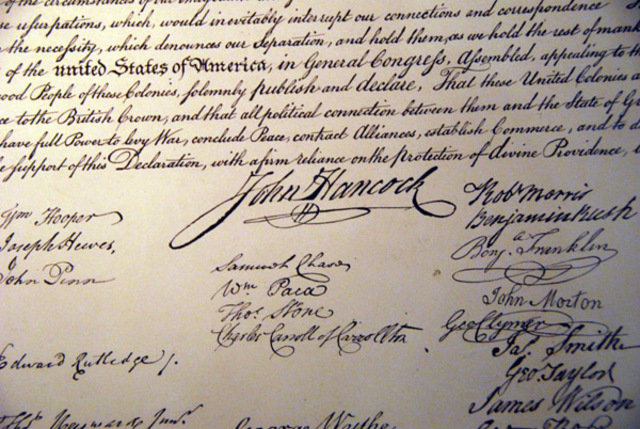 of the circumstances of
usurpations, which, would inevitably interrupt our connections and correspondence
the necessity, which denounces our Separation, and hold them, as we hold the rest of mank
of the united States of America, in General Congress, Assembled, appealing to th
ood People of these Colonies, solemnly publish and declare, That these United Colonies a
ce to the British Crown, and that all political connection between them and the State of G
have full Power to levy War, conclude Peace, contract Alliances, establish Commerce, and to d
e support of this Declaration, with a firm reliance on the protection of divine Providence,
John Hancock
Wm Hooper
Joseph Hewes,
John Penn
Edward Rutledge /.
Thos Heyward Junr.
Samuel Chase
Wm Paca
Thos. Stone
Charles Carroll of Carrollton
George Wythe
Robt Morris
Benjamin Rush
Benja Franklin
John Morton
Geo Clymer
Jas. Smith
Geo. Taylor
James Wilson
Geo. Ross